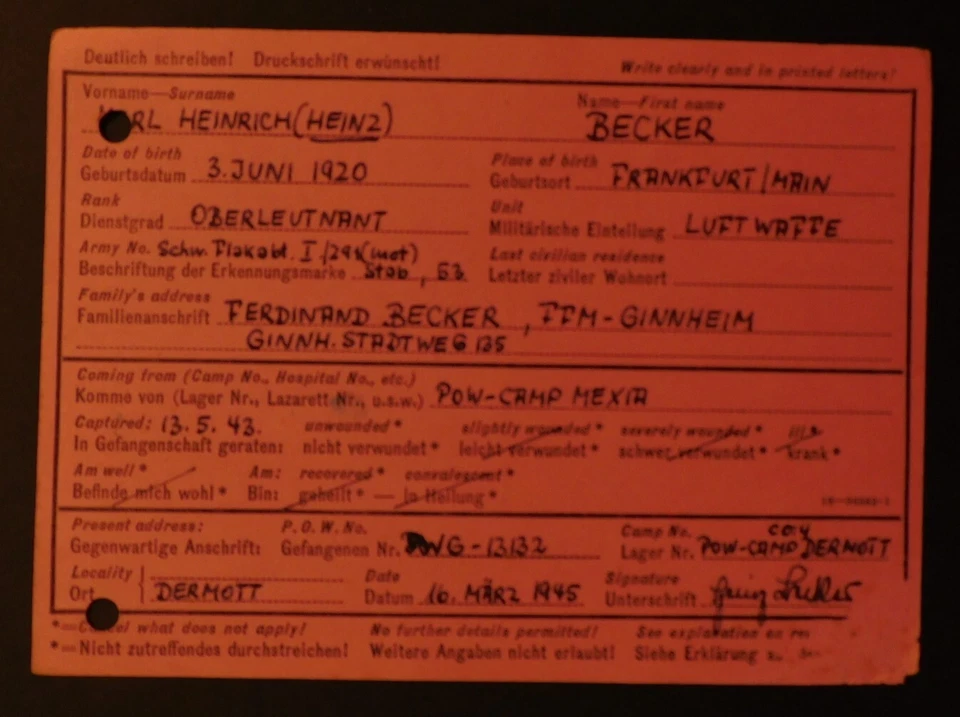 Deutlich schreiben! Druckschrift erwünscht! Write clearly and in printed letters!
Vorname—Surname Name—First name
RL HEINRICH (HEINZ) BECKER
Date of birth Place of birth
Geburtsdatum 3. JUNI 1920 Geburtsort FRANKFURT/MAIN
Rank Unit
Dienstgrad OBERLEUTNANT Militärische Einteilung LUFTWAFFE
Army No. Schw. Flakabt. I./ (mot) Last civilian residence
Beschriftung der Erkennungsmarke Stab, 53 Letzter ziviler Wohnort
Family's address
Familienanschrift FERDINAND BECKER, FFM-GINNHEIM
GINNH. STADTWEG 135
Coming from (Camp No., Hospital No., etc.)
Komme von (Lager Nr., Lazarett Nr., u.s.w.) POW-CAMP MEXIA
Captured: 13. 5. 43. unwounded* slightly wounded* severely wounded* ill*
In Gefangenschaft geraten: nicht verwundet* leicht verwundet* schwer verwundet* krank*
Am well* Am: recovered* convalescent*
Befinde mich wohl* Bin: geheilt* — in Heilung*
Present address: P.O.W. No. Camp No.
Gegenwartige Anschrift: Gefangenen Nr. WG-13132 Lager Nr. POW-CAMP DERMOTT
Locality Date Signature
Ort DERMOTT Datum 16. MÄRZ 1945 Unterschrift
*= what does not apply! No further details permitted! See explanation on
*=Nicht zutreffendes durchstreichen! Weitere Angaben nicht erlaubt! Siehe Erklärung